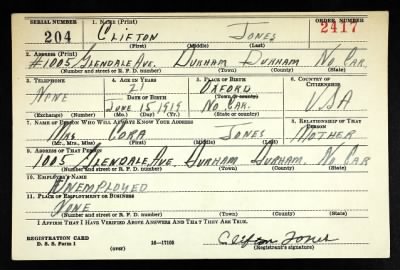 SERIAL NUMBER 1. NAME (Print) ORDER NUMBER
204 CLIFTON JONES 2417
(First) (Middle) (Last)
2. ADDRESS (Print)
#1005 GLENDALE AVE. DURHAM DURHAM NO CAR.
(Number and street or R. F. D. number) (Town) (County) (State)
3. TELEPHONE 4. AGE IN YEARS 5. PLACE OF BIRTH 6. COUNTRY OF CITIZENSHIP
NONE 21 OXFORD USA
DATE OF BIRTH (Town or county)
JUNE 15, 1919 NO CAR.
(Exchange) (Number) (Mo.) (Day) (Yr.) (State or country)
7. NAME OF PERSON WHO WILL ALWAYS KNOW YOUR ADDRESS 8. RELATIONSHIP OF THAT PERSON
MRS CORA JONES MOTHER
(Mr., Mrs., Miss) (First) (Middle) (Last)
9. ADDRESS OF THAT PERSON
1005 GLENDALE AVE. DURHAM DURHAM. NO CAR
(Number and street or R. F. D. number) (Town) (County) (State)
10. EMPLOYER'S NAME
UNEMPLOYED
11. PLACE OF EMPLOYMENT OR BUSINESS
NONE
(Number and street or R. F. D. number) (Town) (County) (State)
I AFFIRM THAT I HAVE VERIFIED ABOVE ANSWERS AND THAT THEY ARE TRUE.
REGISTRATION CARD
D. S. S. Form 1 (over) 16—17105 Clifton Jones
(Registrant's signature)